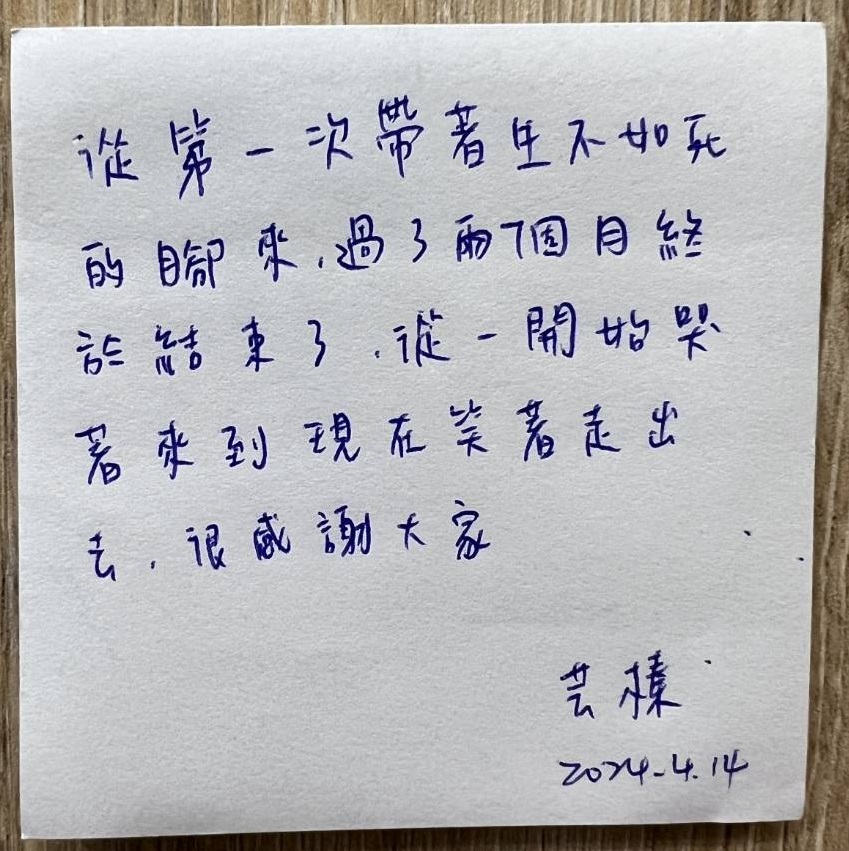 從第一次帶著生不如死
的腳來,過了兩個月終
於結束了,從一開始哭
著來到現在笑著走出
去,很感謝大家
芸榛
2024.4.14